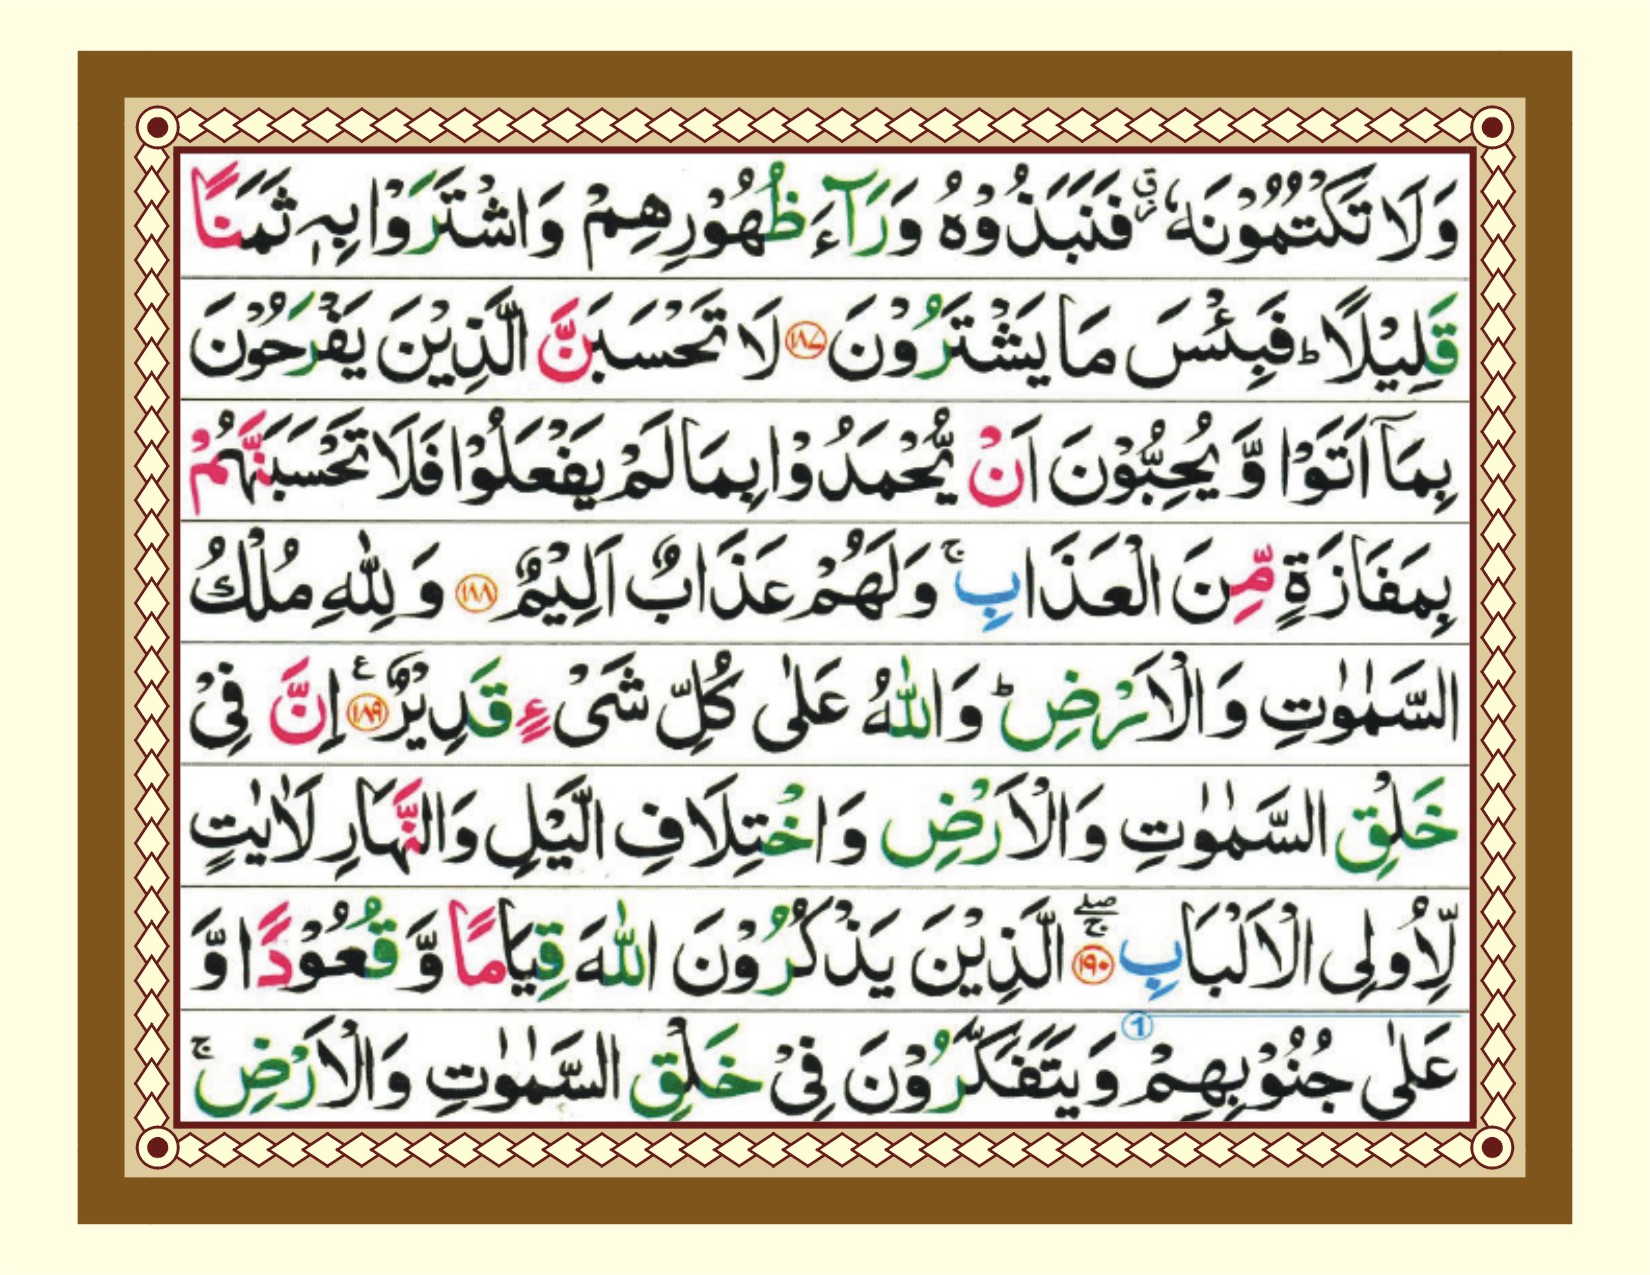 وَلَا تَكْتُمُوْنَهٗ ۫ فَنَبَذُوْهُ وَرَآءَ ظُهُوْرِهِمْ وَاشْتَرَوْا بِهٖ ثَمَنًا
قَلِيْلًا ؕ فَبِئْسَ مَا يَشْتَرُوْنَ ﴿۱۸۷﴾ لَا تَحْسَبَنَّ الَّذِيْنَ يَفْرَحُوْنَ
بِمَاۤ اَتَوْا وَّ يُحِبُّوْنَ اَنْ يُّحْمَدُوْا بِمَا لَمْ يَفْعَلُوْا فَلَا تَحْسَبَنَّهُمْ
بِمَفَازَةٍ مِّنَ الْعَذَابِ ۚ وَلَهُمْ عَذَابٌ اَلِيْمٌ ﴿۱۸۸﴾ وَ لِلّٰهِ مُلْكُ
السَّمٰوٰتِ وَ الْاَرْضِ ؕ وَ اللّٰهُ عَلٰى كُلِّ شَىْءٍ قَدِيْرٌ ﴿۱۸۹﴾ ع اِنَّ فِىْ
خَلْقِ السَّمٰوٰتِ وَ الْاَرْضِ وَ اخْتِلَافِ الَّيْلِ وَ النَّهَارِ لَاٰيٰتٍ
لِّاُولِى الْاَلْبَابِ ﴿۱۹۰﴾ ۖۚ الَّذِيْنَ يَذْكُرُوْنَ اللّٰهَ قِيَامًا وَّ قُعُوْدًا وَّ
عَلٰى جُنُوْبِهِمْ وَ يَتَفَكَّرُوْنَ فِىْ خَلْقِ السَّمٰوٰتِ وَ الْاَرْضِ ۚ
1